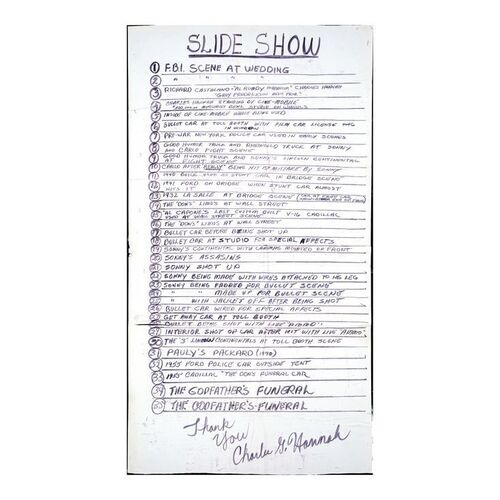 SLIDE SHOW
1 F.B.I. SCENE AT WEDDING
2 " " " "
3 RICHARD CASTELLANO "AL RUDDY CHARLES HANNAH
"GRAY FREDRICKSON EDITOR"
4 CHARLES HANNAH STANDING BY CINE-MOBILE
STUDIO ON WHEELS
5 INSIDE OF CINE-MOBILE WHILE BEING USED
6 BULLET CAR AT TOLL BOOTH WITH FILM CAR LICENSE
7 PRE-WAR NEW YORK POLICE CAR USED IN EARLY SCENES
8 GOOD HUMOR TRUCK AND RHEINGOLD TRUCK AT SONNY
AND CARLO FIGHT SCENE
9 GOOD HUMOR TRUCK AND SONNY'S LINCOLN CONTINENTAL
AT FIGHT SCENE
10 CARLO AFTER REALLY BEING HIT BY MISTAKE BY SONNY
11 1940 BUICK USED AS STUNT CAR IN BRIDGE SCENE
12 1941 FORD ON BRIDGE WHEN STUNT CAR ALMOST
HITS IT
13 1932 LA SALLE AT BRIDGE SCENE
14 THE "DON'S" LIMO'S AT WALL STREET
15 "AL CAPONE'S LAST CUSTOM BUILT V-16 CADILLAC
USED AT WALL STREET SCENE
16 THE "DON'S" LIMO'S AT WALL STREET
17 BULLET CAR BEFORE BEING SHOT UP
18 BULLET CAR AT STUDIO FOR SPECIAL AFFECTS
19 SONNY'S CONTINENTAL WITH CAMERAS MOUNTED ON FRONT
20 SONNY'S ASSASINS
21 SONNY SHOT UP
22 SONNY BEING MADE WITH WIRES ATTACHED TO HIS LEG
23 SONNY BEING PADDED FOR BULLET SCENE
24 " " MADE UP FOR BULLET SCENE
25 " WITH JACKET OFF AFTER BEING SHOT
BULLET CAR WIRED FOR SPECIAL AFFECTS
GET AWAY CAR AT TOLL BOOTH
BULLET BEING SHOT WITH LIVE "AMMO"
INTERIOR SHOT OF CAR AFTER HIT WITH LIVE AMMO
30 THE "3" LINCOLN CONTINENTALS AT TOLL BOOTH SCENE
31 PAULY'S PACKARD
32 FORD POLICE CAR OUTSIDE TENT
33 CADILLAC "THE DON'S FUNERAL CAR
34 THE GODFATHER'S FUNERAL
35 THE GODFATHER'S FUNERAL
Thank
You
Charles G. Hannah